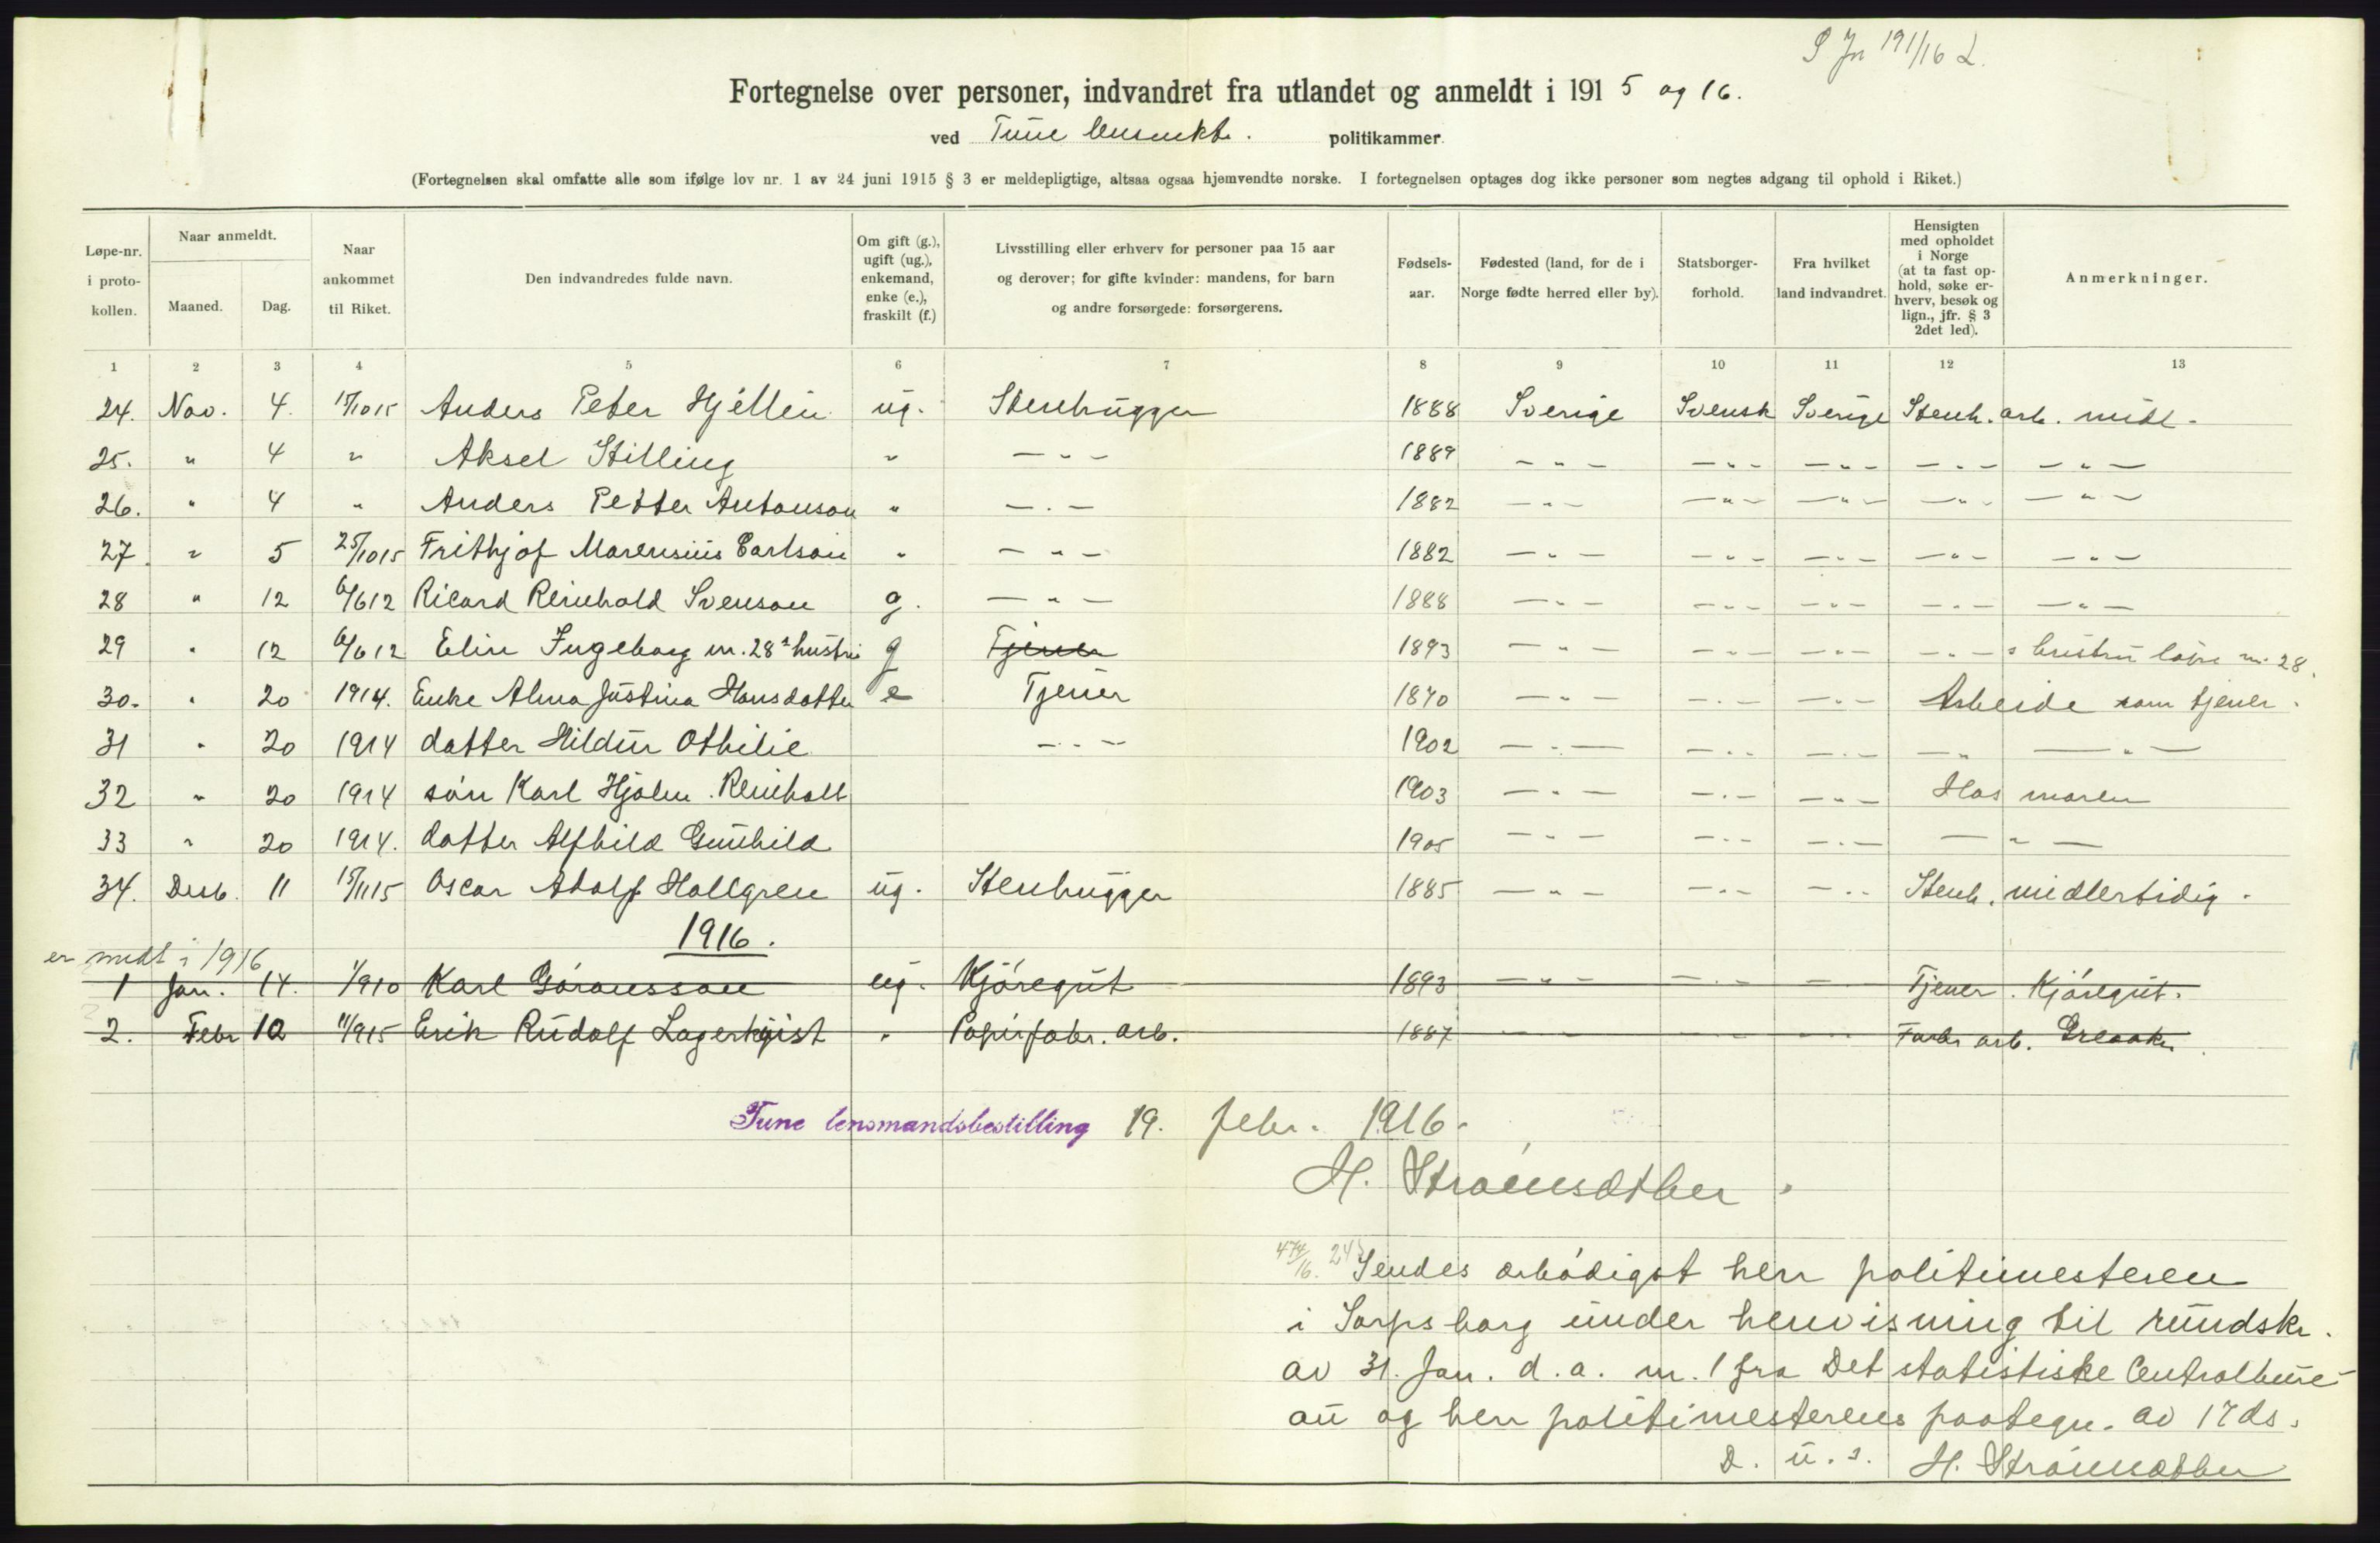 191/16 L.
Fortegnelse over personer, indvandret fra utlandet og anmeldt i 1915 og 16.
ved Tune politikammer.
(Fortegnelsen skal omfatte alle som ifølge lov nr. 1 av 24 juni 1915 § 3 er meldepligtige, altsaa ogsaa hjemvendte norske. I fortegnelsen optages dog ikke personer som negtes adgang til ophold i Riket.)
Løpe-nr. i proto-kollen. Naar anmeldt. Maaned. Dag. Naar ankommet til Riket. Den indvandredes fulde navn. Om gift (g.), ugift (ug.), enkemand, enke (e.), fraskilt (f.) Livsstilling eller erhverv for personer paa 15 aar og derover; for gifte kvinder: mandens, for barn og andre forsørgede: forsørgerens. Fødsels-aar. Fødested (land, for de i Norge fødte herred eller by). Statsborger-forhold. Fra hvilket land indvandret. Hensigten med opholdet i Norge (at ta fast op-hold, søke er-hverv, besøk og lign., jfr. § 3 2det led). Anmerkninger.
1 2 3 4 5 6 7 8 9 10 11 12 13
24. Nov. 4. 15/10 15 Anders Peter Hjéllin ug. Stenhugger 1888 Sverige Svensk Sverige Stenh. arb. midl.
25. " 4 " Aksel Stilling " — " — 1889 — " — — " — — " — — " — — " —
26. " 4 " Anders Petter Antonson " — " — 1882 — " — — " — — " — — " — — " —
27. " 5 25/10 15 Frithjof Marensius Carlson " — " — 1882 — " — — " — — " — — " — — " —
28 " 12 6/6 12 Ricard Reinhold Svenson g. — " — 1888 — " — — " — — " — — " — — " —
29 " 12 6/6 12 Elin Ingeborg nr. 28s hustru g Tjener 1893 — " — — " — — " — — " — s hustru løpe nr. 28.
30. " 20 1914. Enke Alma Justina Hansdatter e Tjener 1870 — " — — " — — " — Arbeide som tjener.
31 " 20 1914 datter Hildur Othilie — " — 1902 — " — — " — — " — — " — " —
32 " 20 1914 søn Karl Hjalm. Reinholt 1903 — " — — " — — " — Hos moren
33 " 20 1914. datter Alfhild Gunhild 1905 — " — — " — — " — — " —
34. Desb. 11 15/11 15 Oscar Adolf Hallgren ug. Stenhugger 1885 — " — — " — — " — Stenh. midlertidig.
1916.
er medt i 1916
1 Jan. 14. 1/9 10 Karl Göransson ug. Kjøregut 1893 — " — — " — — Tjener. Kjøregut.
2. Febr 12 11/9 15 Erik Rudolf Lagerkqist " Papirfabr. arb. 1887 — — — Fabr arb. Greaaker.
Tune lensmandsbestilling 19. febr. 1916.
H. Strømsæther.
474/16. Sendes ærbødigst herr politimesteren
i Sarpsborg under henvisning til rundskr.
av 31. Jan. d. a. nr. 1 fra Det statistiske Centralbure-
au og herr politimesterens paategn. av 17 ds.
D. u. s. H. Strømsæther